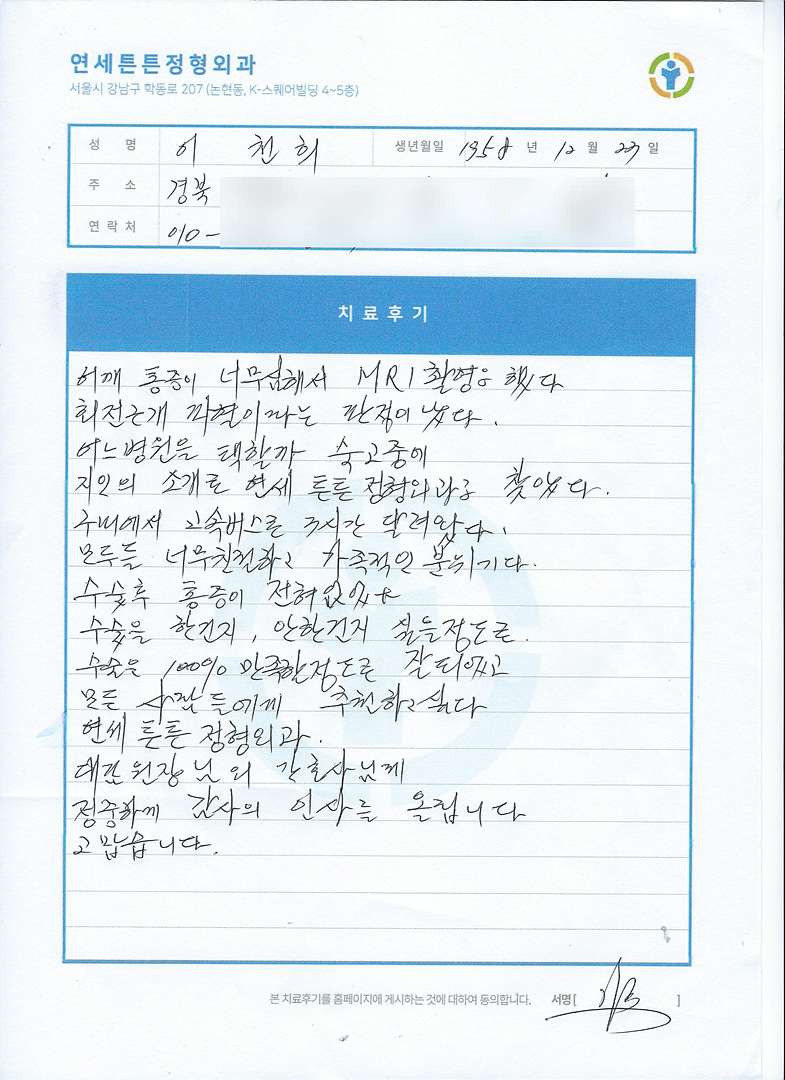 연세튼튼정형외과
서울시 강남구 학동로 207 (논현동, K-스퀘어빌딩 4~5층)
성 명 이 천 희 생년월일 1958 년 12 월 23 일
주 소 경북
연락처 010-
치료후기
어깨 통증이 너무심해서 MRI 촬영을 했다
회전근개 파열이라는 판정이 났다.
어느병원을 택할까 숙고중에
지인의 소개로 연세 튼튼 정형외과를 찾았다.
구미에서 고속버스로 3시간 달려왔다.
모두들 너무친절하고 가족적인 분위기다.
수술후 통증이 전혀없었다
수술을 한건지, 안한건지 싶을정도로.
수술은 100% 만족할정도로 잘되었고
모든 사람들에게 추천하고싶다
연세 튼튼 정형외과.
대표원장님외 간호사님께
정중하게 감사의 인사를 올립니다
고맙습니다.
본 치료후기를 홈페이지에 게시하는 것에 대하여 동의합니다. 서명 [ ]